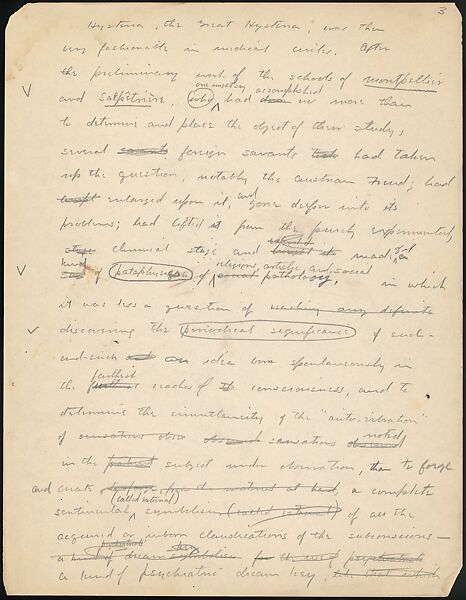 3
Hysteria, the Great Hysteria, was then
very fashionable in medical circles. After
the preliminary work of the schools of Montpellier
and Salpêtrière, who had one might say accomplished no more than
to determine and place the object of their study,
several savants foreign savants had taken
up the question, notably the Austrian Freud; had
enlarged upon it, and gone deeper into its
problems; had lifted it from the purely experimental,
clinical stage and made of it a
kind of pataphysics of religious, artistic, and social pathology, in which
it was less a question of reaching any definite
discovering the primordial significance of such-
and-such an idea born spontaneously in
the farthest reaches of consciousness, and to
determine the simultaneity of the "auto-vibration"
of sensations noted
in the patient subject under observation, than to forge
and create a complete
sentimental (called rational) symbolism (called rational) of all the
acquired or inborn claudications of the subconscious—
a kind of dream symbolics for the use of psychiatrists
a kind of psychiatric dream key,